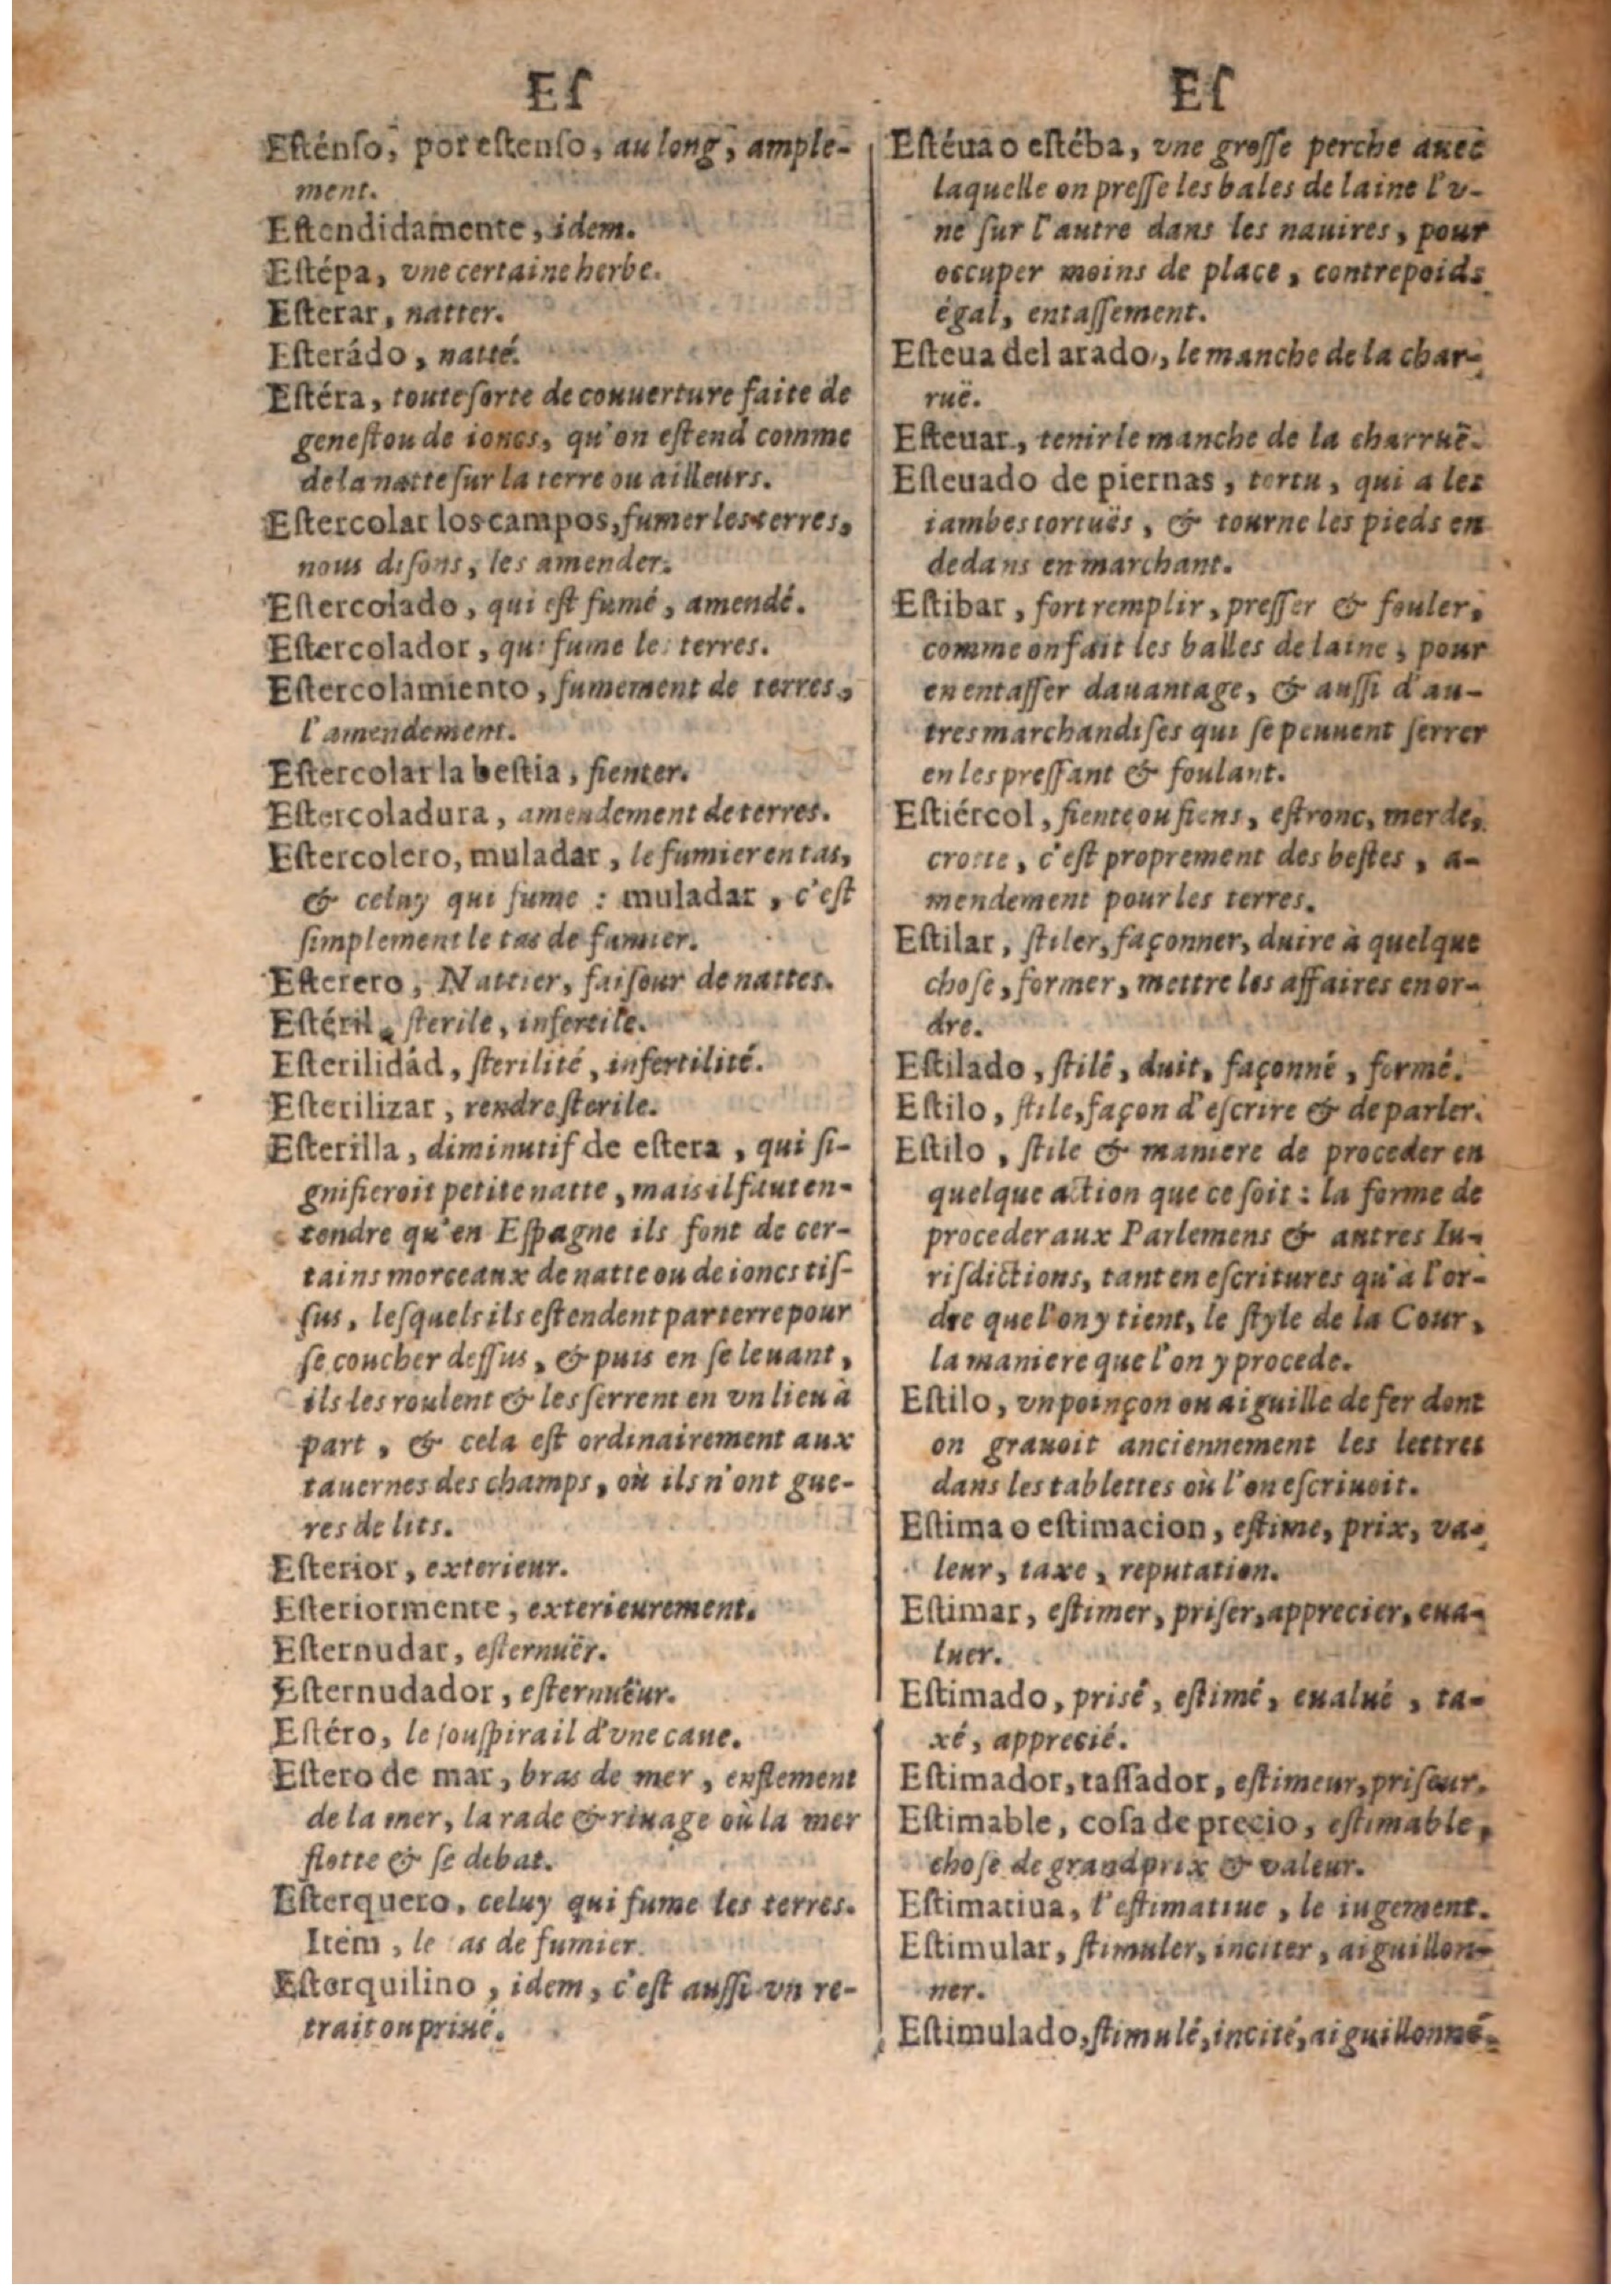 Eſ
Eſténſo, por eſtenſo, au long, ample-
ment.
Eſtendidamente, idem.
Eſtépa, vne certaine herbe.
Eſterar, natter.
Eſterádo, natté.
Eſtéra, toute ſorte de couuerture faite de
geneſt ou de ioncs, qu'on eſtend comme
de la natte ſur la terre ou ailleurs.
Eſtercolar los campos, fumer les terres,
nous diſons, les amender.
Eſtercolado, qui eſt fumé, amendé.
Eſtercolador, qui fume les terres.
Eſtercolamiento, fumement de terres,
l'amendement.
Eſtercolar la beſtia, fienter.
Eſtercoladura, amendement de terres.
Eſtercolero, muladar, le fumier en tas,
& celuy qui fume : muladar, c'eſt
ſimplement le tas de fumier.
Eſterero, Nattier, faiſeur de nattes.
Eſtéril, ſterile, infertile.
Eſterilidád, ſterilité, infertilité.
Eſterilizar, rendre ſterile.
Eſterilla, diminutif de eſtera, qui ſi-
gnifieroit petite natte, mais il faut en-
tendre qu'en Eſpagne ils font de cer-
tains morceaux de natte ou de ioncs tiſ-
ſus, leſquels ils eſtendent par terre pour
ſe coucher deſſus, & puis en ſe leuant,
ils les roulent & les ſerrent en vn lieu à
part, & cela eſt ordinairement aux
tauernes des champs, où ils n'ont gue-
res de lits.
Eſterior, exterieur.
Eſteriormente, exterieurement.
Eſternudar, eſternuër.
Eſternudador, eſternuëur.
Eſtéro, le ſouſpirail d'vne caue.
Eſtero de mar, bras de mer, enflement
de la mer, la rade & riuage où la mer
flotte & ſe debat.
Eſterquero, celuy qui fume les terres.
Item, le tas de fumier.
Eſterquilino, idem, c'eſt auſſi vn re-
trait ou priué.
Eſ
Eſtéua o eſtéba, vne groſſe perche auec
laquelle on preſſe les bales de laine l'v-
ne ſur l'autre dans les nauires, pour
occuper moins de place, contrepoids
égal, entaſſement.
Eſteua del arado, le manche de la char-
ruë.
Eſteuar, tenir le manche de la charruë.
Eſteuado de piernas, tortu, qui a les
iambes tortuës, & tourne les pieds en
dedans en marchant.
Eſtibar, fort remplir, preſſer & fouler,
comme on fait les balles de laine, pour
en entaſſer dauantage, & auſſi d'au-
tres marchandiſes qui ſe peuuent ſerrer
en les preſſant & foulant.
Eſtiércol, fiente ou fiens, eſtronc, merde,
crotte, c'eſt proprement des beſtes, a-
mendement pour les terres.
Eſtilar, ſtiler, façonner, duire à quelque
choſe, former, mettre les affaires en or-
dre.
Eſtilado, ſtilé, duit, façonné, formé.
Eſtilo, ſtile, façon d'eſcrire & de parler.
Eſtilo, ſtile & maniere de proceder en
quelque action que ce ſoit : la forme de
proceder aux Parlemens & autres Iu-
riſdictions, tant en eſcritures qu'à l'or-
dre que l'on y tient, le ſtyle de la Cour,
la maniere que l'on y procede.
Eſtilo, vn poinçon ou aiguille de fer dont
on grauoit anciennement les lettres
dans les tablettes où l'on eſcriuoit.
Eſtima o eſtimacion, eſtime, prix, va-
leur, taxe, reputation.
Eſtimar, eſtimer, priſer, apprecier, eua-
luer.
Eſtimado, prisé, eſtimé, eualué, ta-
xé, apprecié.
Eſtimador, taſſador, eſtimeur, priſeur.
Eſtimable, coſa de precio, eſtimable,
choſe de grand prix & valeur.
Eſtimatiua, l'eſtimatiue, le iugement.
Eſtimular, ſtimuler, inciter, aiguillon-
ner.
Eſtimulado, ſtimulé, incité, aiguillonné.